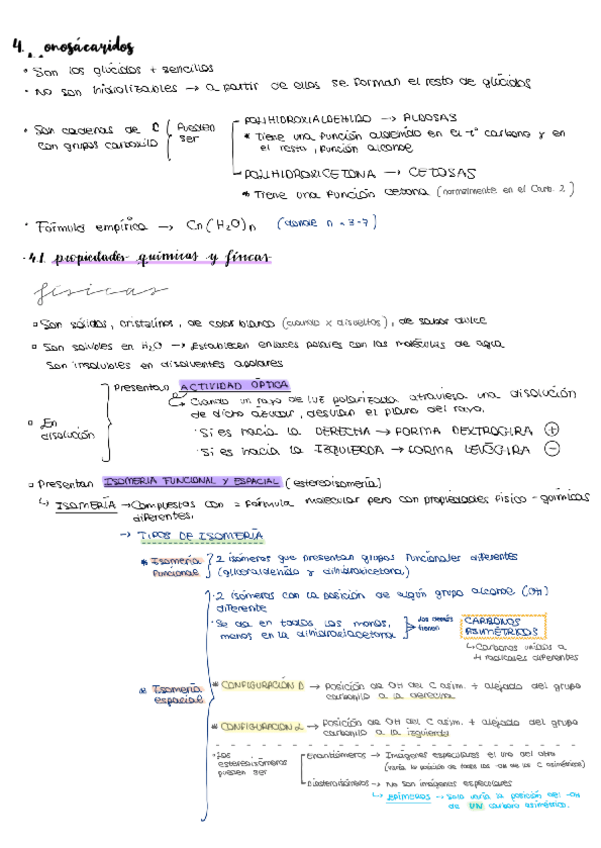 4. onosácaridos
• Son los glúcidos + sencillos
• No son hidrolizables → a partir de ellos se forman el resto de glúcidos
• Son cadenas de C con grupos carbonilo
Pueden ser
POLIHIDROXIALDEHIDO → ALDOSAS
* Tiene una función aldehído en el 1º carbono y en
el resto, función alcohol
POLIHIDROXICETONA → CETOSAS
* Tiene una función cetona (normalmente en el Carb. 2)
• Fórmula empírica → Cn(H2O)n (donde n = 3-7)
·4.1. propiedades químicas y físicas
físicas
▫ Son sólidos, cristalinos, de color blanco (cuando x disueltos), de sabor dulce
▫ Son solubles en H2O → Establecen enlaces polares con las moléculas de agua
Son insolubles en disolventes apolares
▫ En disolución
Presentan ACTIVIDAD ÓPTICA
↳ Cuando un rayo de luz polarizada atraviesa una disolución
de dicho azúcar, desvían el plano del rayo.
·Si es hacia la DERECHA → FORMA DEXTRÓGIRA +
·Si es hacia la IZQUIERDA → FORMA LEVÓGIRA −
▫ Presentan ISOMERÍA FUNCIONAL Y ESPACIAL (estereoisomería)
↳ ISOMERÍA → Compuestos con = fórmula molecular pero con propiedades físico-químicas
diferentes.
→ TIPOS DE ISOMERÍA
* Isomería Funcional
2 isómeros que presentan grupos funcionales diferentes
(gliceraldehído y dihidroxicetona)
* Isomería espacial
· 2 isómeros con la posición de algún grupo alcohol (OH)
diferente
· Se da en todos los monos,
menos en la dihidroxiacetona
los demás tienen
CARBONOS
ASIMÉTRICOS
↳ Carbonos unidos a
4 radicales diferentes
* CONFIGURACIÓN D → Posición de OH del C asim. + alejado del grupo
carbonilo a la derecha
* CONFIGURACIÓN L → Posición de OH del C asim. + alejado del grupo
carbonilo a la izquierda
· Los estereoisómeros pueden ser
Enantiómeros → Imágenes especulares el uno del otro
(varía la posición de todos los -OH de los C asimétricos)
Diastereoisómeros → No son imágenes especulares
↳ EPÍMEROS → Solo varía la posición del -OH
de UN carbono asimétrico.